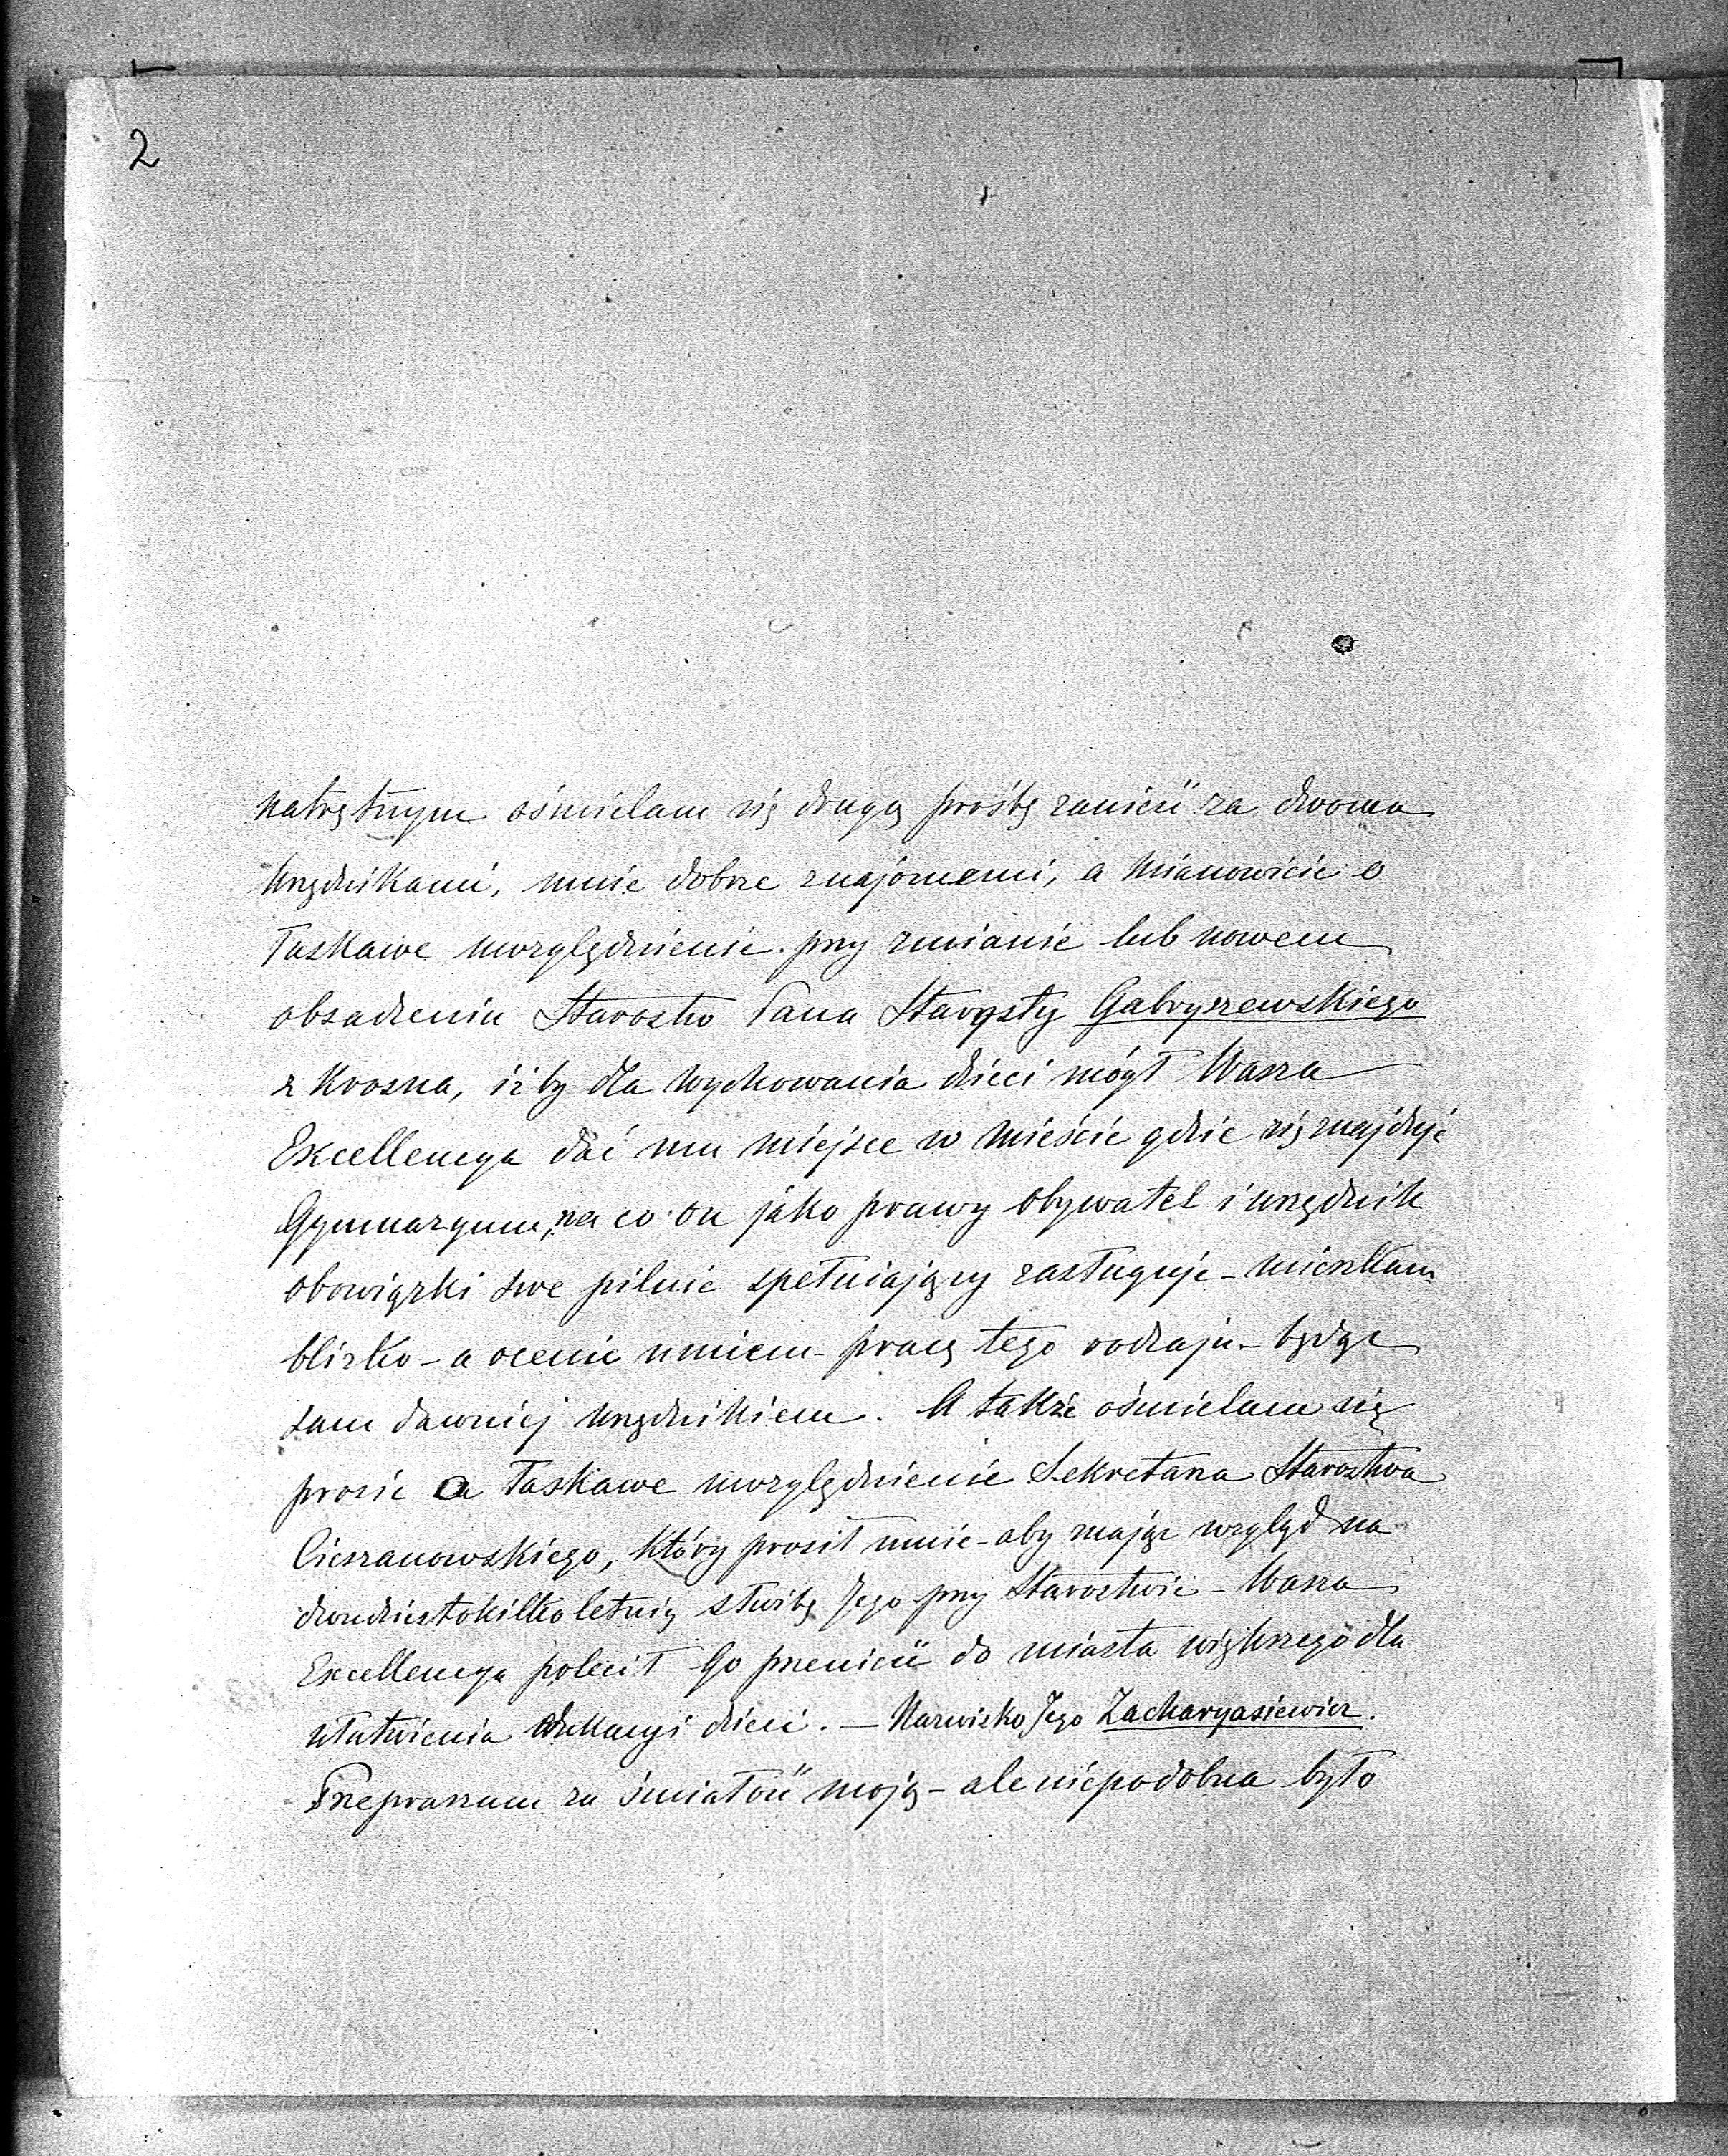 2
natrętnym ośmielam się drugą prośbę zanieść za dwoma
urzędnikami, mnie dobrze znajomemi, a mianowicie o
łaskawe uwzględnienie przy zmianie lub nowem
obsadzeniu Starostw Pana Starosty Gabryszewskiego
z Krosna, iżby dla wychowania dzieci mógł Wasza
Excellencya dać mu miejsce w mieście gdzie się znajduje
Gymnazyum, na co on jako prawy obywatel i urzędnik
obowiązki swe pilnie spełniający zasługuje - mieszkam
blizko - a ocenić umiem - pracę tego rodzaju - będąc
sam dawniej urzędnikiem. A także ośmielam się
prosić o łaskawe uwzględnienie Sekretarza Starostwa
Cieszanowskiego, który prosił mnie - aby mając wzgląd na
dwudziestokilkoletnią służbę Jego przy Starostwie - Wasza
Excellencya polecił Go przenieść do miasta większego dla
ułatwienia edukacyi dzieci. — Nazwisko Jego Zacharyasiewicz.
Przepraszam za śmiałość moją - ale niepodobna było